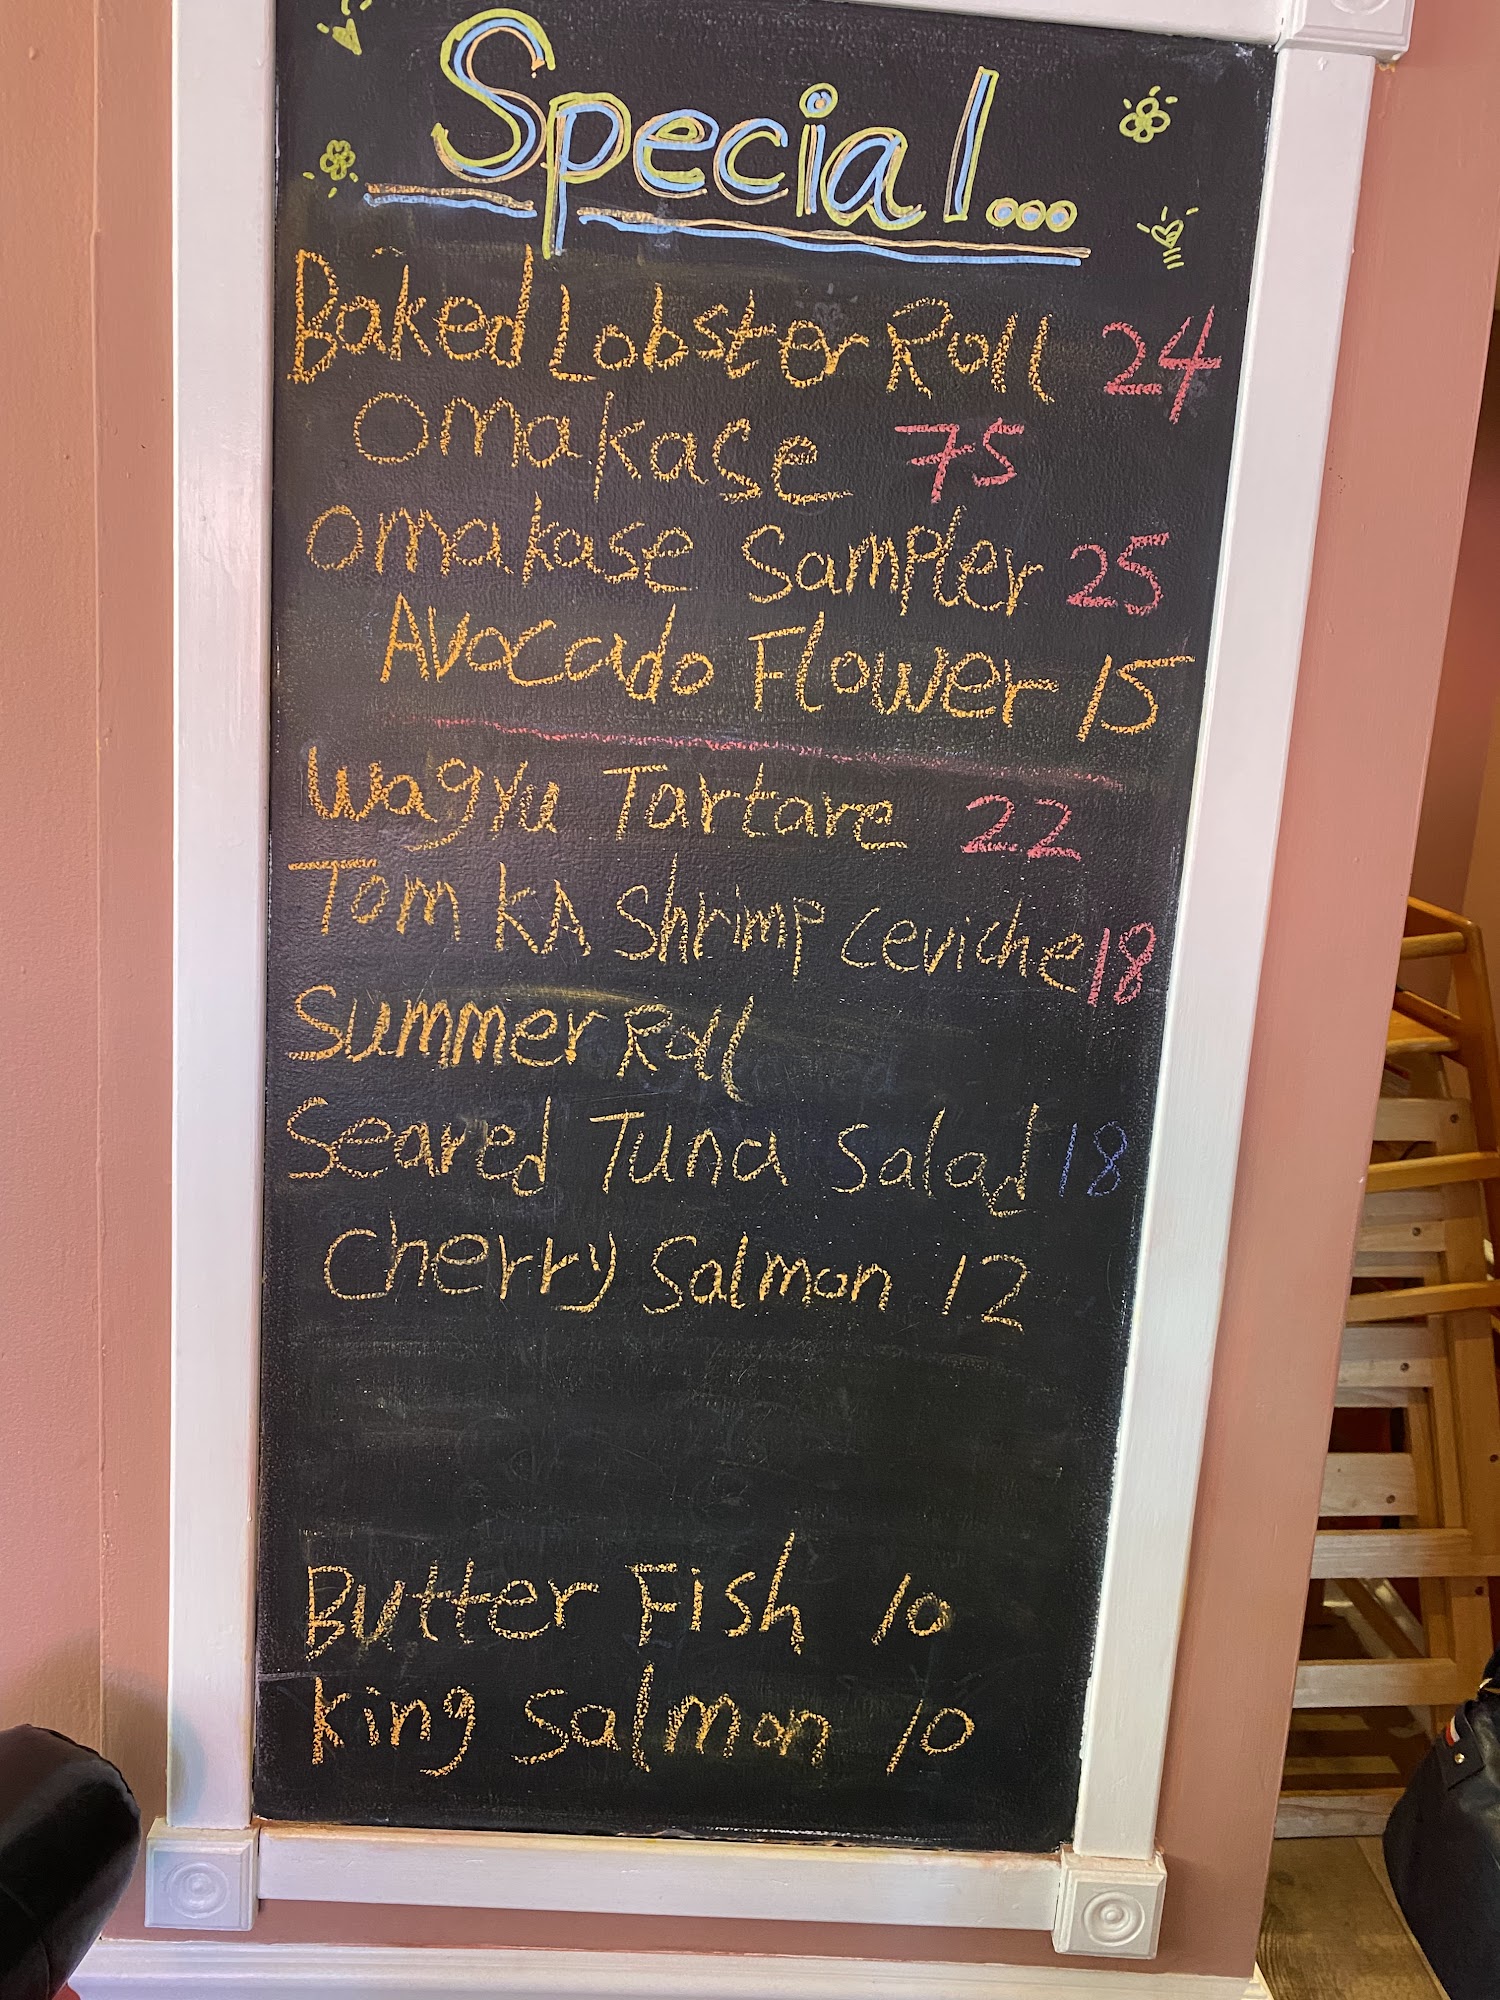 Special...
Baked Lobster Roll 24
Omakase 75
Omakase Sampler 25
Avocado Flower 15
Wagyu Tartare 22
Tom KA Shrimp Ceviche 18
Summer Roll
Seared Tuna Salad 18
Cherry Salmon 12
Butter Fish 10
King Salmon 10